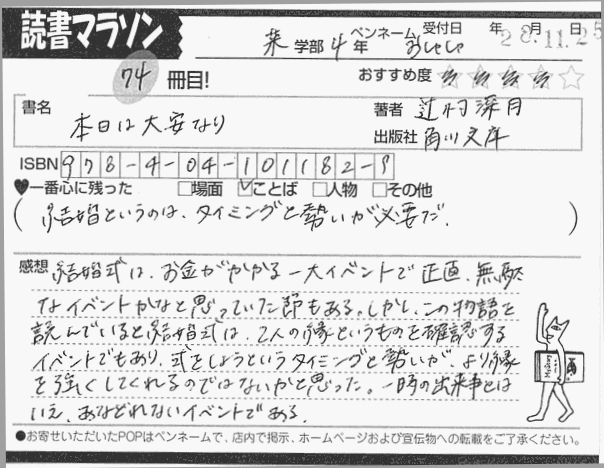 読書マラソン
薬 学部 4 年 ペンネーム おせせ 受付日 年 月 日 28.11.25
74 冊目! おすすめ度 ★★★★☆
書名 本日は大安なり
著者 辻村深月
出版社 角川文庫
ISBN 978-4-04-101182-9
♥一番心に残った □場面 ☑ことば □人物 □その他
(結婚というのは、タイミングと勢いが必要だ.)
感想 結婚式は、お金がかかる一大イベントで正直、無駄
なイベントかなと思っていた節もある。しかし、この物語を
読んでいると結婚式は、2人の縁というものを確認する
イベントでもあり、式をしようというタイミングと勢いが、より縁
を強くしてくれるのではないかと思った。一時の出来事とは
いえ、あなどれないイベントである.
●お寄せいただいたPOPはペンネームで、店内で掲示、ホームページおよび宣伝物への転載をご了承ください。